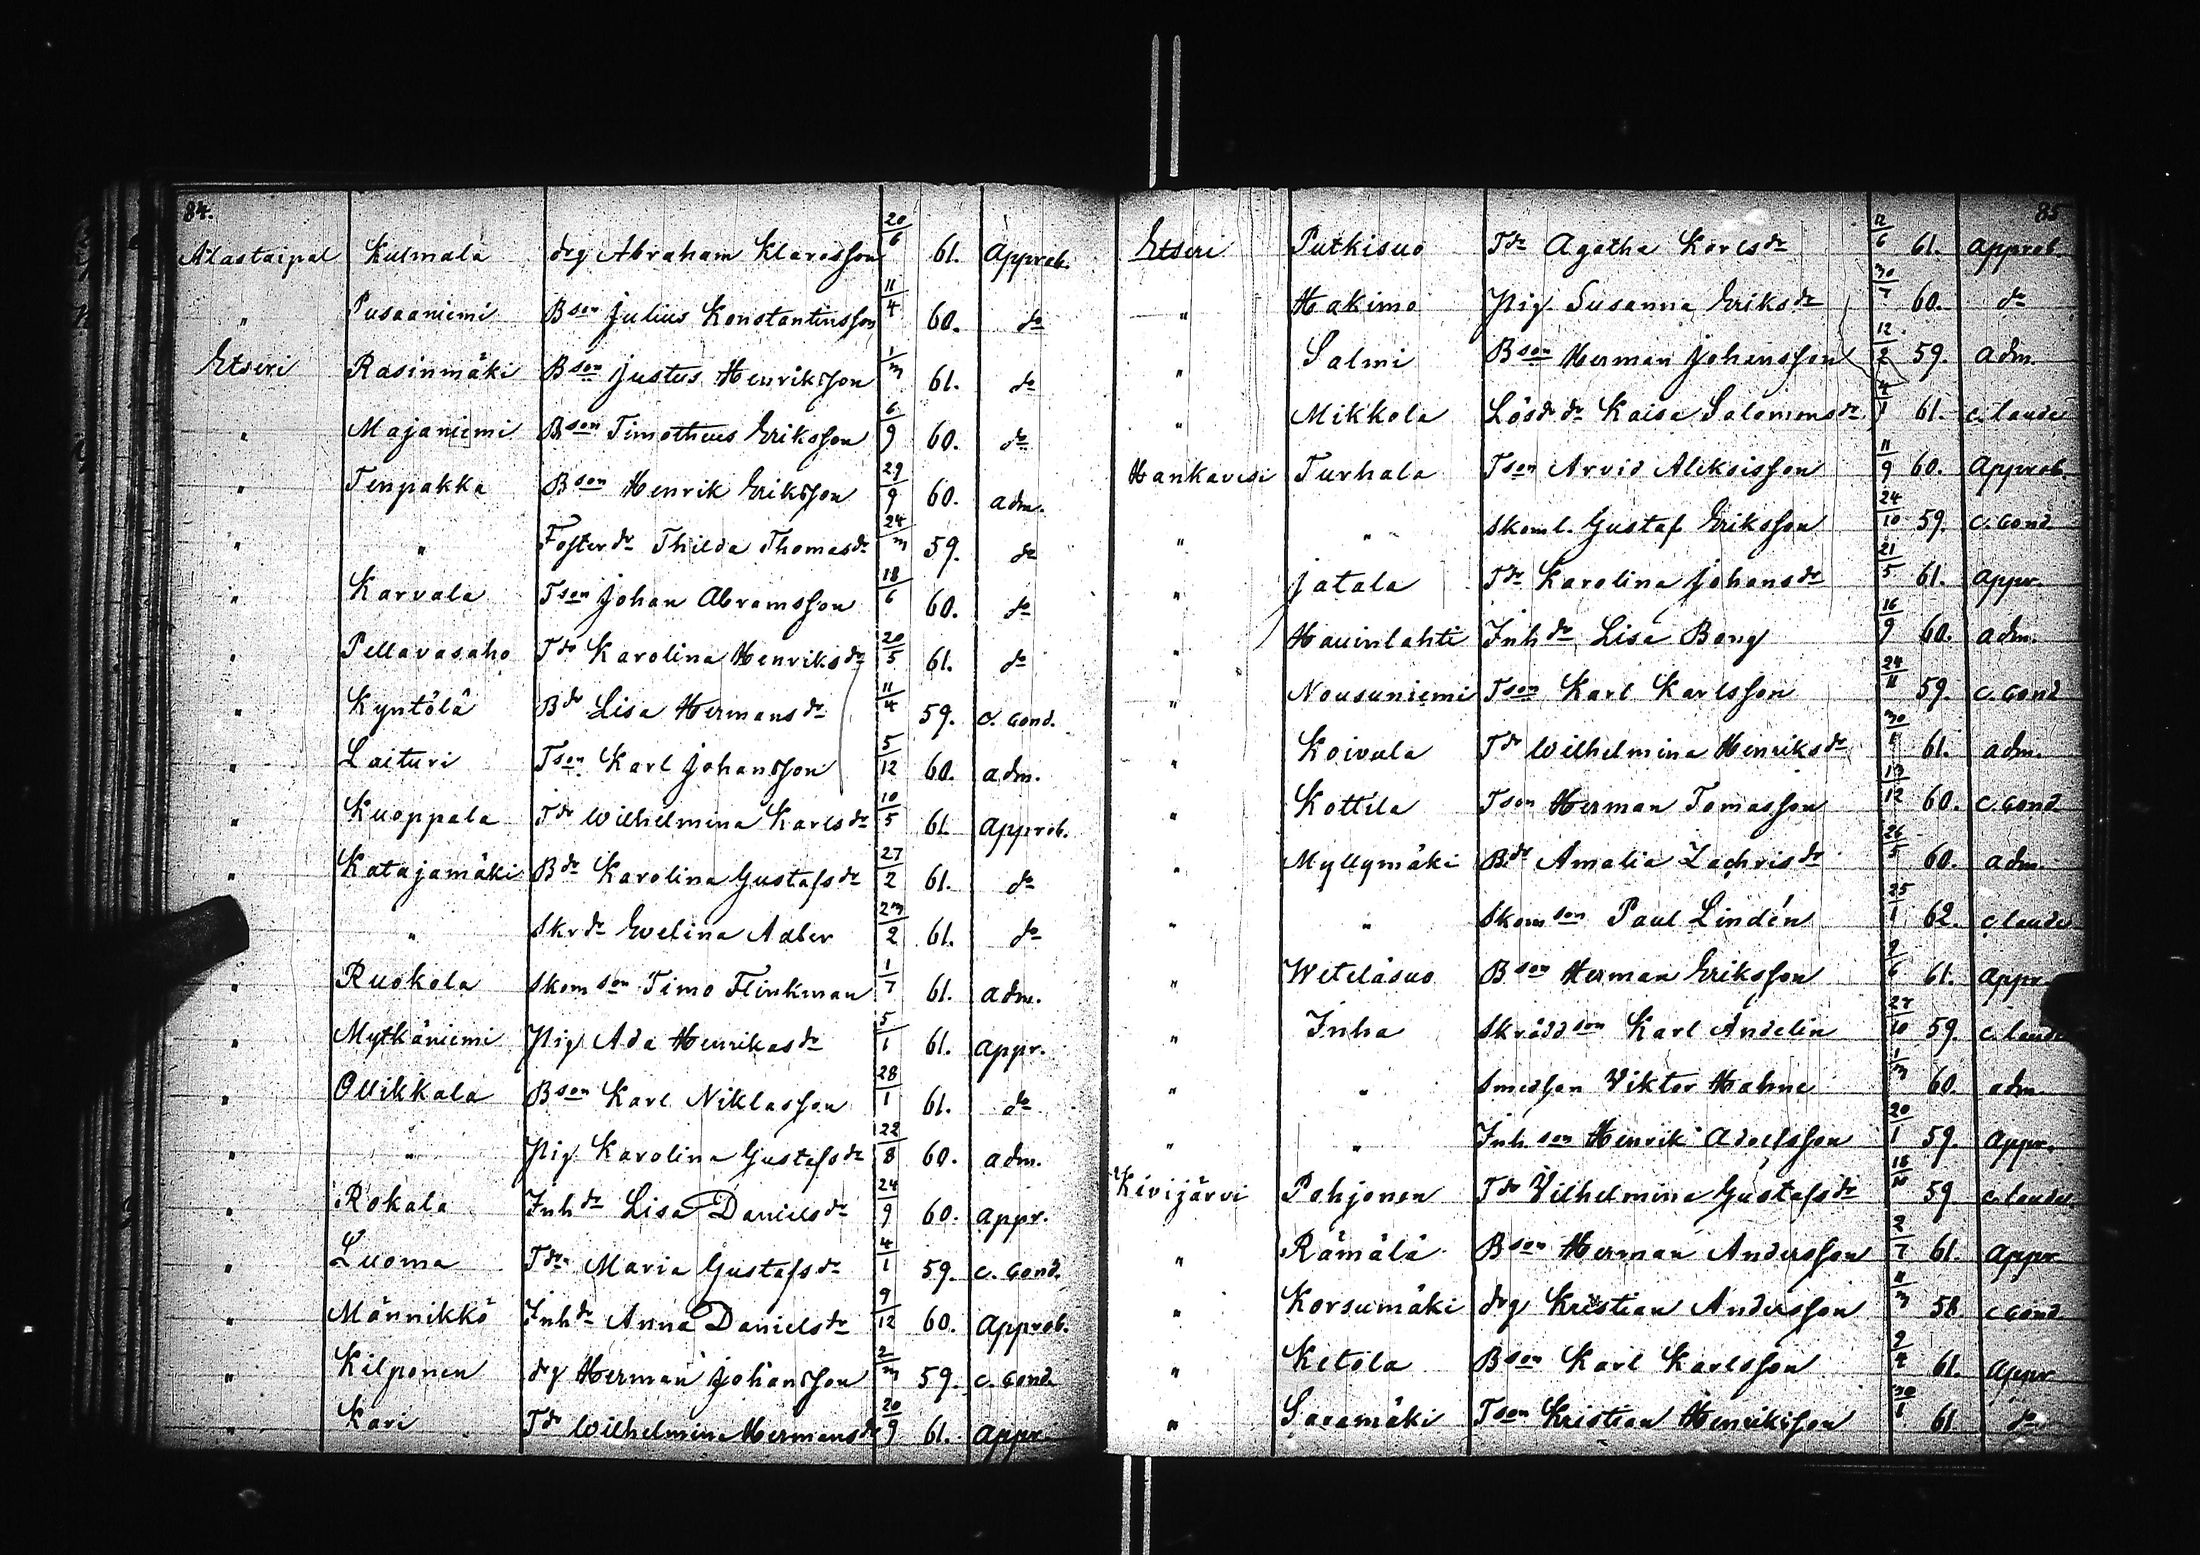 84.
Alastaipal Kulmala drg Abraham Klarasson 20/6 61. Approb.
" Pusaaniemi Bson Julius Konstantinsson 11/4 60. do
Etseri Rasinmäki Bson Justus Henriksson 1/m 61. do
" Majaniemi Bson Timotheus Eriksson 6/9 60. do
" Tenpakka Bson Henrik Eriksson 29/9 60. adm.
" " Foster dr Thilda Thomasdr 24/m 59. do
" Karvala Tson Johan Abramsson 18/6 60. do
" Pellavasaho Tdr Karolina Henriksdr 20/5 61. do
" Kyntölä Bdr Lisa Hermansdr 11/4 59. c. Cond.
" Laituri Tson Karl Johansson 5/12 60. adm.
" Kuoppala Tdr Wilhelmina Karlsdr 10/5 61. Approb.
" Katajamäki Bdr Karolina Gustafsdr 27/2 61. do
" " Skrdr Evelina Adler 2m/2 61. do
" Ruokola Skomson Timo Flinkman 1/7 61. adm.
" Mytkäniemi Pig Ada Henriksdr 5/1 61. appr.
" Ollikkala Bson Karl Niklasson 28/1 61. do
" " Pig Karolina Gustafsdr 22/8 60. adm.
" Rokala Inhdr Lisa Danielsdr 24/9 60. appr.
" Luoma Tdr Maria Gustafsdr 4/1 59. c. Cond.
" Männikkö Inhdr Anna Danielsdr 9/12 60. Approb.
" Kilponen drg Herman Johansson 2/m 59. c. Cond.
" Kari Tdr Wilhelmina Hermansdr 20/9 61. Appr.
85
Etseri Putkisuo Tdr Agatha Karlsdr 12/6 61. Approb.
" Hakimo Pig. Susanna Eriksdr 30/7 60. do
" Salmi Bson Herman Johansson 12/2 59. adm.
" Mikkola Lösdr dr Kaisa Salomonsdr 4/1 61. c. laude
Hankavesi Turhala Tson Arvid Aleksisson 11/9 60. Approb.
" " Skoml. Gustaf Eriksson 24/10 59. c. Cond
" Jatala Tdr Karolina Johansdr 21/5 61. appr.
" Hauinlahti Inhdr Lisa Bong 16/9 60. adm.
" Nousuniemi Tson Karl Karlsson 24/11 59. c. Cond
" Koivula Tdr Wilhelmina Henriksdr 61. adm.
" Kottila Tson Herman Tomasson 13/12 60. c. Cond
" Myllymäki Bdr Amalia Zachrisdr 26/5 60. adm.
" " Skomson Paul Lindén 25/1 62. c laude
" Weteläsuo Bson Herman Eriksson 61. appr.
" Inha Skräddson Karl Andelin 27/10 59. c. laude
" " Smedson Viktor Hahne 1/m 60. adm.
" " Inhson Henrik Adolfsson 20/1 59. Appr.
Kivijärvi Pohjonen Tdr Vilhelmina Gustafsdr 59 c. laude
" Rämälä Bson Herman Andersson 2/7 61. appr
" Korsumäki drg Kristian Andersson 11/m 58 c Cond.
" Ketola Bson Karl Karlsson 61. appr
" Saramäki Tson Kristian Henriksson 61 do